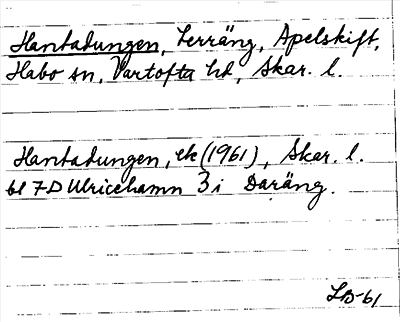 Hantadungen, Terräng, Apelskift,
Habo sn, Vartofta hd, Skar. l.
Hantadungen, ek (1961), Skar. l.
bl 7D Ulricehamn 3i Daräng.
LB-61